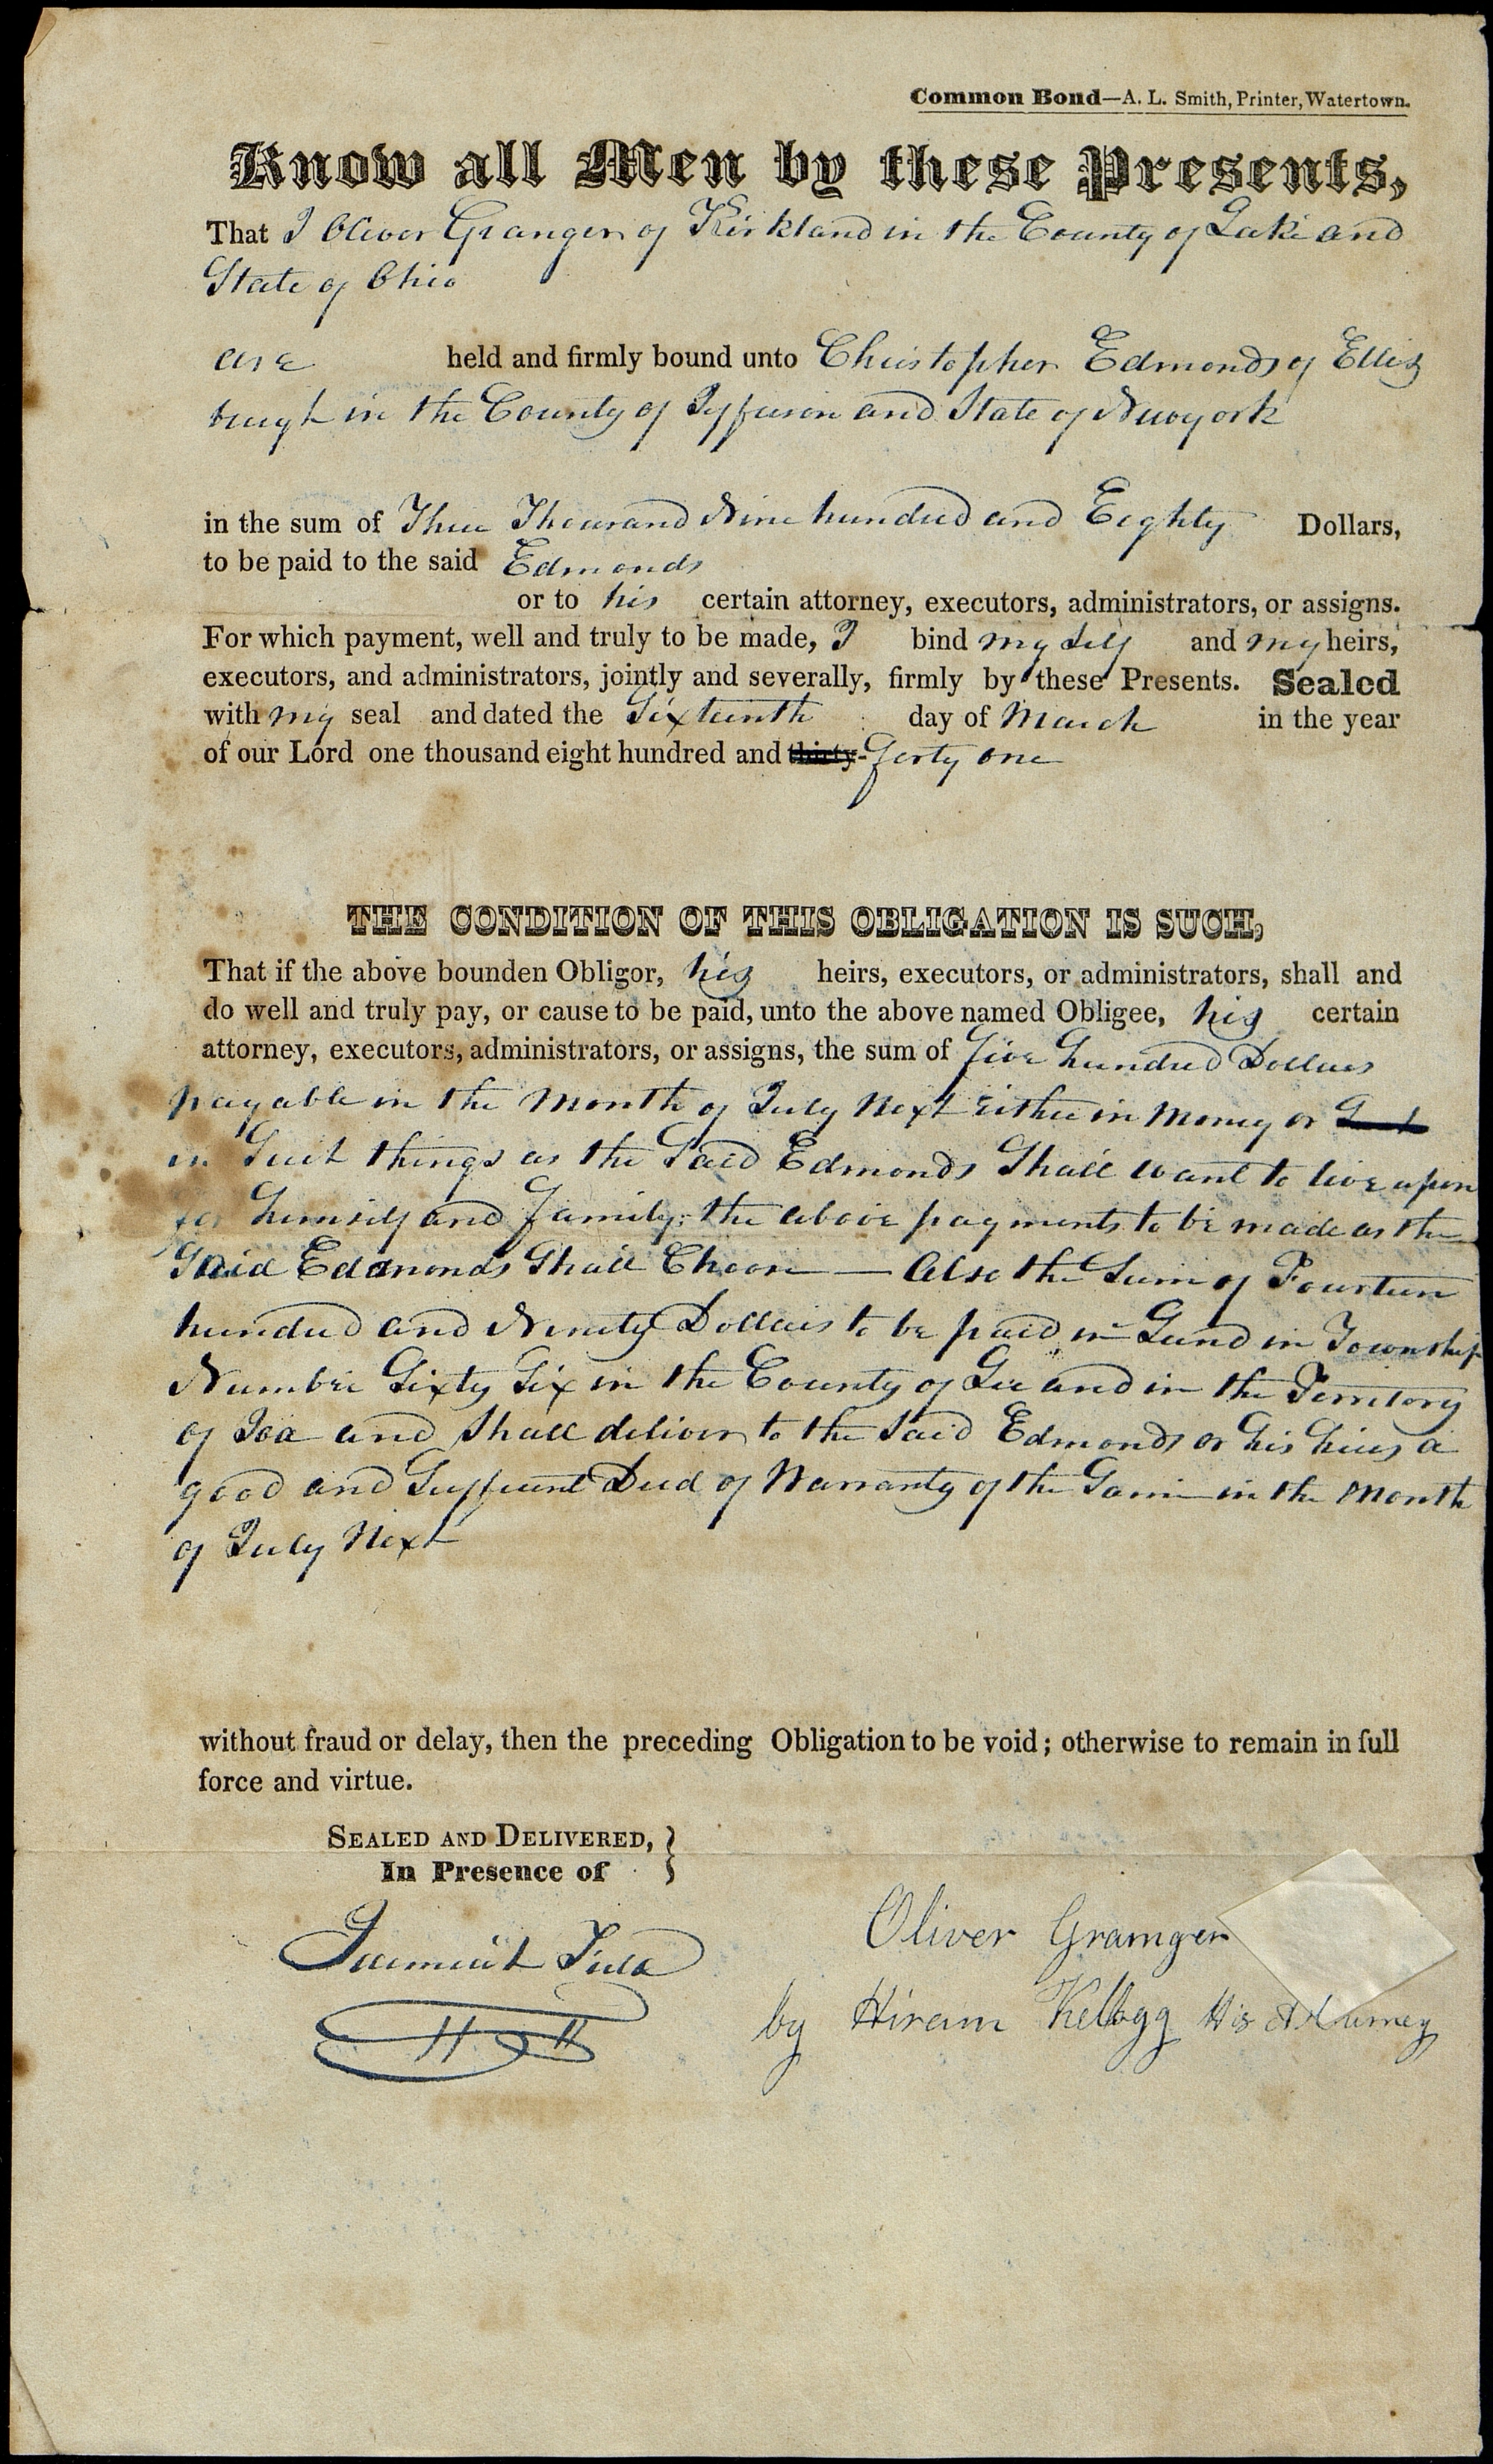 Common Bond—A. L. Smith, Printer, Watertown.
Know all Men by these Presents,
That I Oliver Granger of Kirkland in the County of Lake and
State of Ohio
are held and firmly bound unto Christopher Edmonds of Ellis
burgh in the County of Jefferson and State of Newyork
in the sum of Three Thousand Nine hundred and Eighty Dollars,
to be paid to the said Edmonds
or to his certain attorney, executors, administrators, or assigns.
For which payment, well and truly to be made, I bind my self and my heirs,
executors, and administrators, jointly and severally, firmly by these Presents. Sealed
with my seal and dated the Sixteenth day of March in the year
of our Lord one thousand eight hundred and thirty- forty one
THE CONDITION OF THIS OBLIGATION IS SUCH,
That if the above bounden Obligor, his heirs, executors, or administrators, shall and
do well and truly pay, or cause to be paid, unto the above named Obligee, his certain
attorney, executors, administrators, or assigns, the sum of five hundred Dollars
payable in the month of July Next either in money or
in Such things as the Said Edmonds Shall want to live upon
for himself and family; the above payments to be made as the
Said Edmonds Shall Choose — Also the Sum of Fourteen
hundred and Ninety Dollars to be paid in Land in Township
Number Sixty Six in the County of Lee and in the Territory
of Ioa and Shall deliver to the Said Edmonds or his heirs a
good and Suffient Deed of Warranty of the Same in the Month
of July Next
without fraud or delay, then the preceding Obligation to be void; otherwise to remain in full
force and virtue.
SEALED AND DELIVERED, }
In Presence of
Oliver Granger
by Hiram Kellogg His Atturney